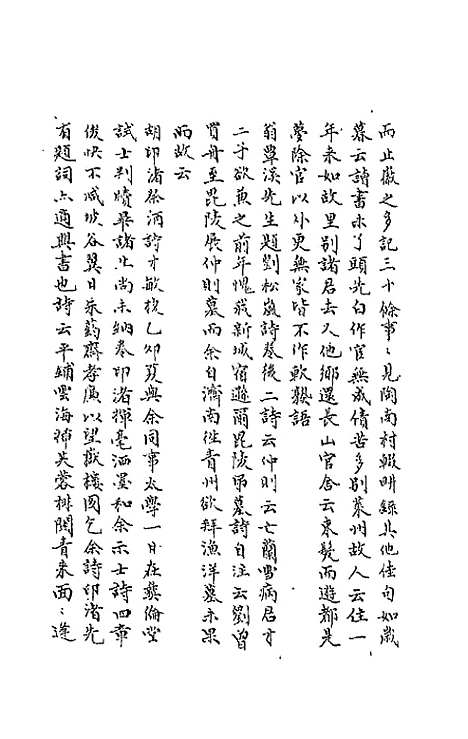 而止徵之多記三十餘事〻見閩南村輟畊錄其他佳句如歲
暮云詩書未了頭先白作官無成債苦多別萊州故人云住一
年來如故里別諸居去又他鄉還長山官舍云束髮而遊都是
夢除官以外更無家皆不作軟熟語
翁覃溪先生題劉松嵐詩卷後二詩云仲則云亡蘭雪病居才
二子欲兼之前年愧我新城宿遜爾毘陵弔墓詩自注云劉曾
買舟至毘陵展仲則墓而余自濟南徃青州欲拜漁洋墓未果
而故云
胡印渚祭酒詩才敏捷乙卯夏與余同事太學一日在彝倫堂
試士判牘畢諸生尚未納卷印渚揮毫洒墨和余示士詩四章
俊快不減坡谷翼日朱蒟齋孝廉以望嶽樓圖乞余詩印渚先
有題詞亦適與書也詩云平鋪雲海揷芙蓉排闥青來面〻逢